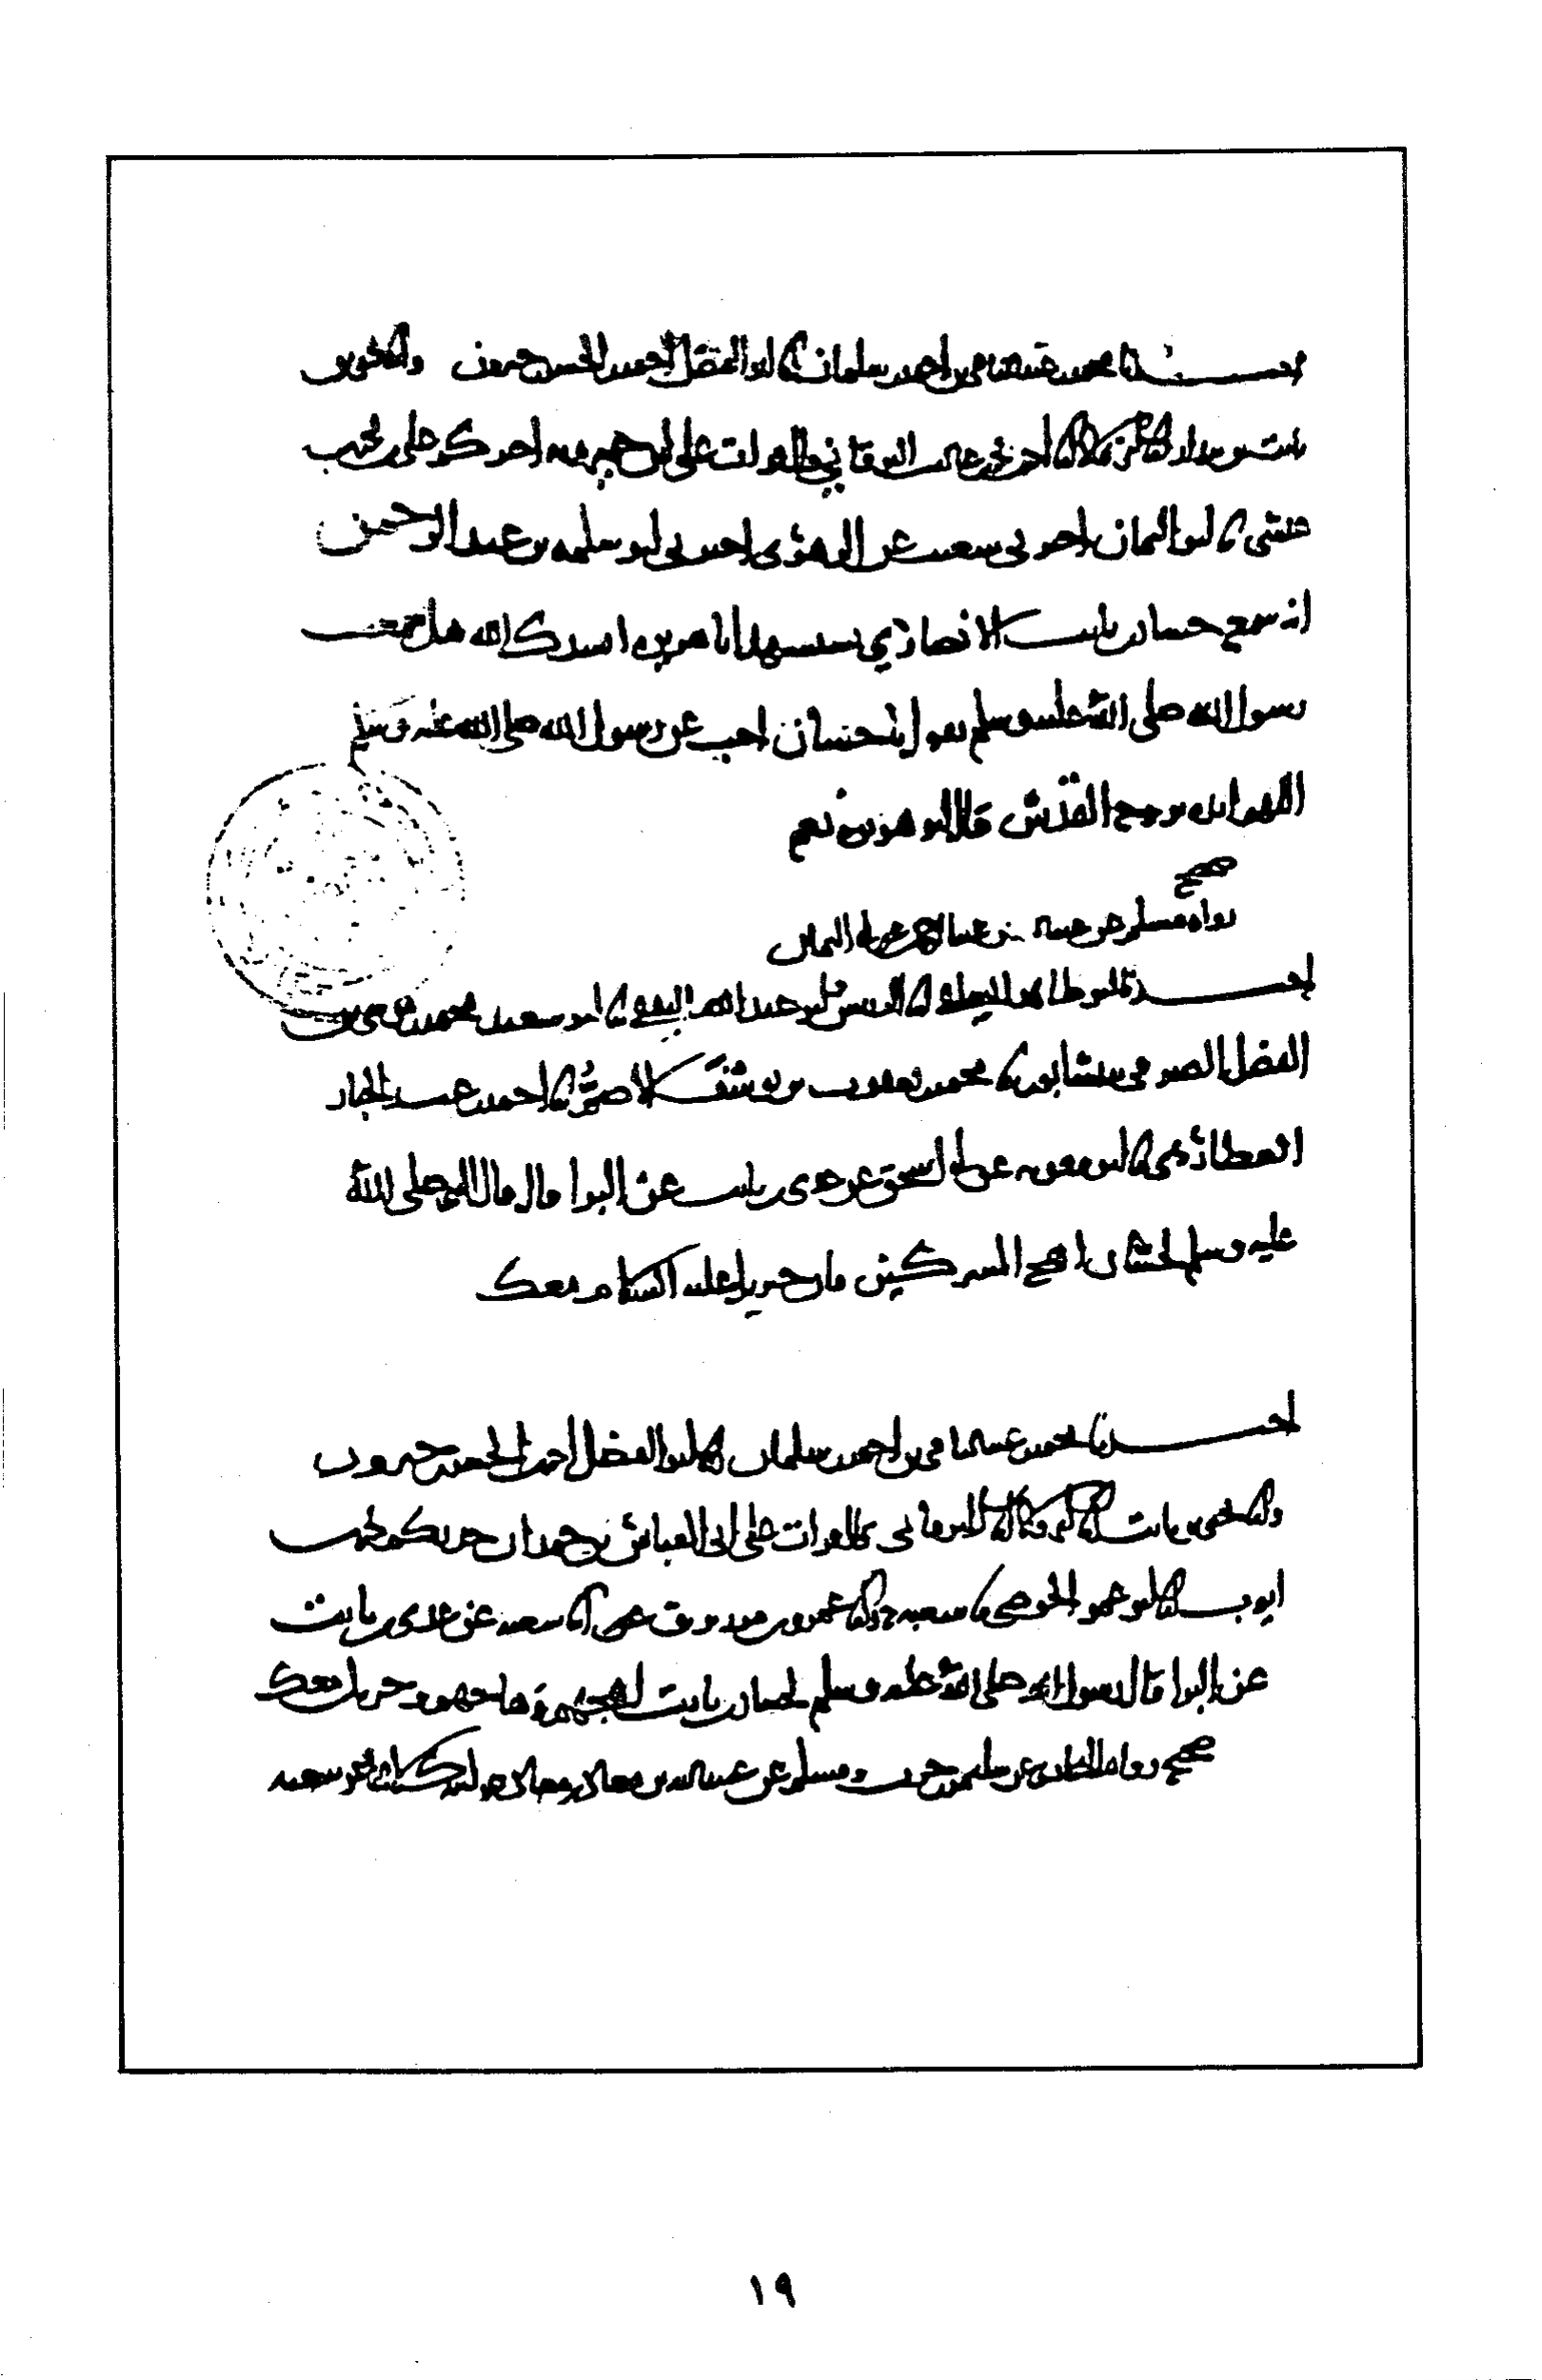 اخبرنا محمد بن عبد الباقي بن احمد بن سلمان انا ابو الفضل احمد بن الحسن بن خيرون وانا يحيى بن
ثابت بن بندار انا قالا انا احمد بن محمد بن غالب البرقاني قال قرات على اخبركم علي بن محمد بن
عيسى نا ابو اليمان اخبرني شعيب عن الزهري اخبرني ابو سلمه بن عبد الرحمن
انه سمع حسان بن ثابت الانصاري يستشهد ابا هريره انشدك الله هل سمعت
رسول الله صلى الله عليه وسلم يقول يا حسان اجب عن رسول الله صلى الله عليه وسلم
اللهم ايده بروح القدس قال ابو هريره نعم
صحيح
رواه مسلم عن عبد الله بن عبد الرحمن عن ابي اليمان
اخبرنا ابو طاهر انا الرئيس ابو عبد الله الثقفي نا ابو سعيد محمد بن موسى بن
الفضل الصيرفي بنيسابور نا محمد بن يعقوب بن يوسف الاصم نا احمد بن عبد الجبار
العطاردي نا ابو معويه عن ابي اسحق عن عدي بن ثابت عن البرا قال قال النبي صلى الله
عليه وسلم لحسان اهج المشركين فان جبريل عليه السلام معك
اخبرنا محمد بن عبد الباقي بن احمد بن سلمان انا ابو الفضل احمد بن الحسن بن خيرون
وانا يحيى بن ثابت انا قالا انا البرقاني قال قرات على ابي العباس بن حمدان حدثكم محمد بن
ايوب انا ابو عمر الحوضي نا شعبه ح وانا عمرو بن مرزوق انا شعبه عن عدي بن ثابت
عن البرا قال رسول الله صلى الله عليه وسلم لحسان بن ثابت اهجهم او هاجهم وجبريل معك
صحيح رواه البخاري عن سليمن بن حرب ومسلم عن عبيد الله بن معاذ بن معاذ عن ابيه كلاهما عن شعبه
١٩